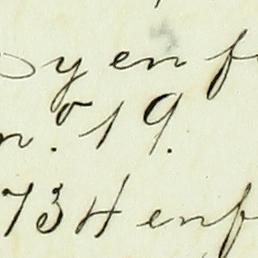 y en f
n.º 19.
734 enf